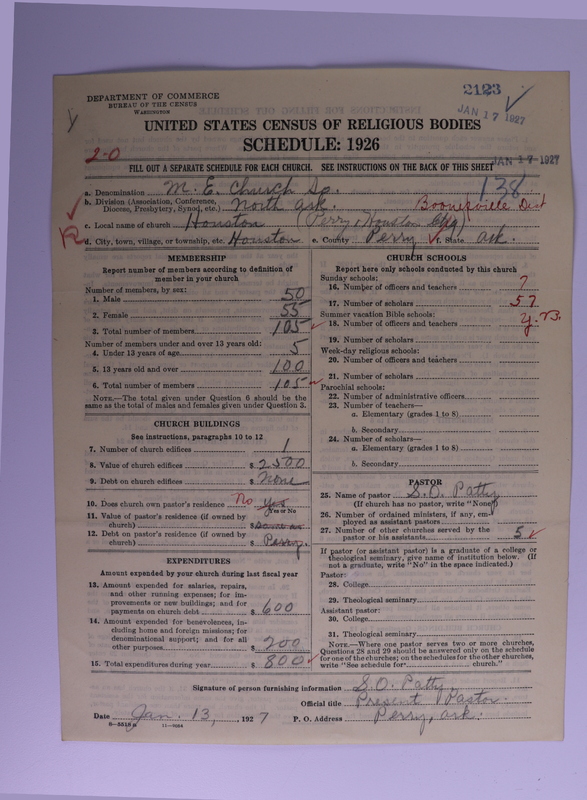 2123
JAN 17 1927
DEPARTMENT OF COMMERCE
BUREAU OF THE CENSUS
WASHINGTON
UNITED STATES CENSUS OF RELIGIOUS BODIES
SCHEDULE: 1926
2-0
JAN 17 1927
FILL OUT A SEPARATE SCHEDULE FOR EACH CHURCH. SEE INSTRUCTIONS ON THE BACK OF THIS SHEET
138
a. Denomination M. E. Church So.
b. Division (Association, Conference, Diocese, Presbytery, Synod, etc.) North Ark. Booneville Dist
c. Local name of church Houston (Perry & Houston Chg)
d. City, town, village, or township, etc. Houston e. County Perry f. State Ark.
MEMBERSHIP
Report number of members according to definition of
member in your church
Number of members, by sex:
1. Male 50
2. Female 55
3. Total number of members 105
Number of members under and over 13 years old:
4. Under 13 years of age 5
5. 13 years old and over 100
6. Total number of members 105
NOTE.—The total given under Question 6 should be the
same as the total of males and females given under Question 3.
CHURCH BUILDINGS
See instructions, paragraphs 10 to 12
7. Number of church edifices 1
8. Value of church edifices $ 2500
9. Debt on church edifices $ None
10. Does church own pastor's residence No Yes
(Yes or No)
11. Value of pastor's residence (if owned by
church) $
12. Debt on pastor's residence (if owned by
church) $ Perry.
EXPENDITURES
Amount expended by your church during last fiscal year
13. Amount expended for salaries, repairs,
and other running expenses; for im-
provements or new buildings; and for
payments on church debt $ 600
14. Amount expended for benevolences, in-
cluding home and foreign missions; for
denominational support; and for all
other purposes $ 200
15. Total expenditures during year $ 800
CHURCH SCHOOLS
Report here only schools conducted by this church
Sunday schools:
16. Number of officers and teachers 7
17. Number of scholars 57
Summer vacation Bible schools:
18. Number of officers and teachers
19. Number of scholars
Week-day religious schools:
20. Number of officers and teachers
21. Number of scholars
Parochial schools:
22. Number of administrative officers
23. Number of teachers—
a. Elementary (grades 1 to 8)
b. Secondary
24. Number of scholars—
a. Elementary (grades 1 to 8)
b. Secondary
PASTOR
25. Name of pastor S. O. Patty
(If church has no pastor, write "None")
26. Number of ordained ministers, if any, em-
ployed as assistant pastors
27. Number of other churches served by the
pastor or his assistants 5
If pastor (or assistant pastor) is a graduate of a college or
theological seminary, give name of institution below. (If
not a graduate, write "No" in the space indicated.)
Pastor:
28. College
29. Theological seminary
Assistant pastor:
30. College
31. Theological seminary
NOTE.—Where one pastor serves two or more churches,
Questions 28 and 29 should be answered only on the schedule
for one of the churches; on the schedules for the other churches,
write "See schedule for church."
Signature of person furnishing information S. O. Patty
Official title Present Pastor.
Date Jan. 13, 1927 P. O. Address Perry, Ark.